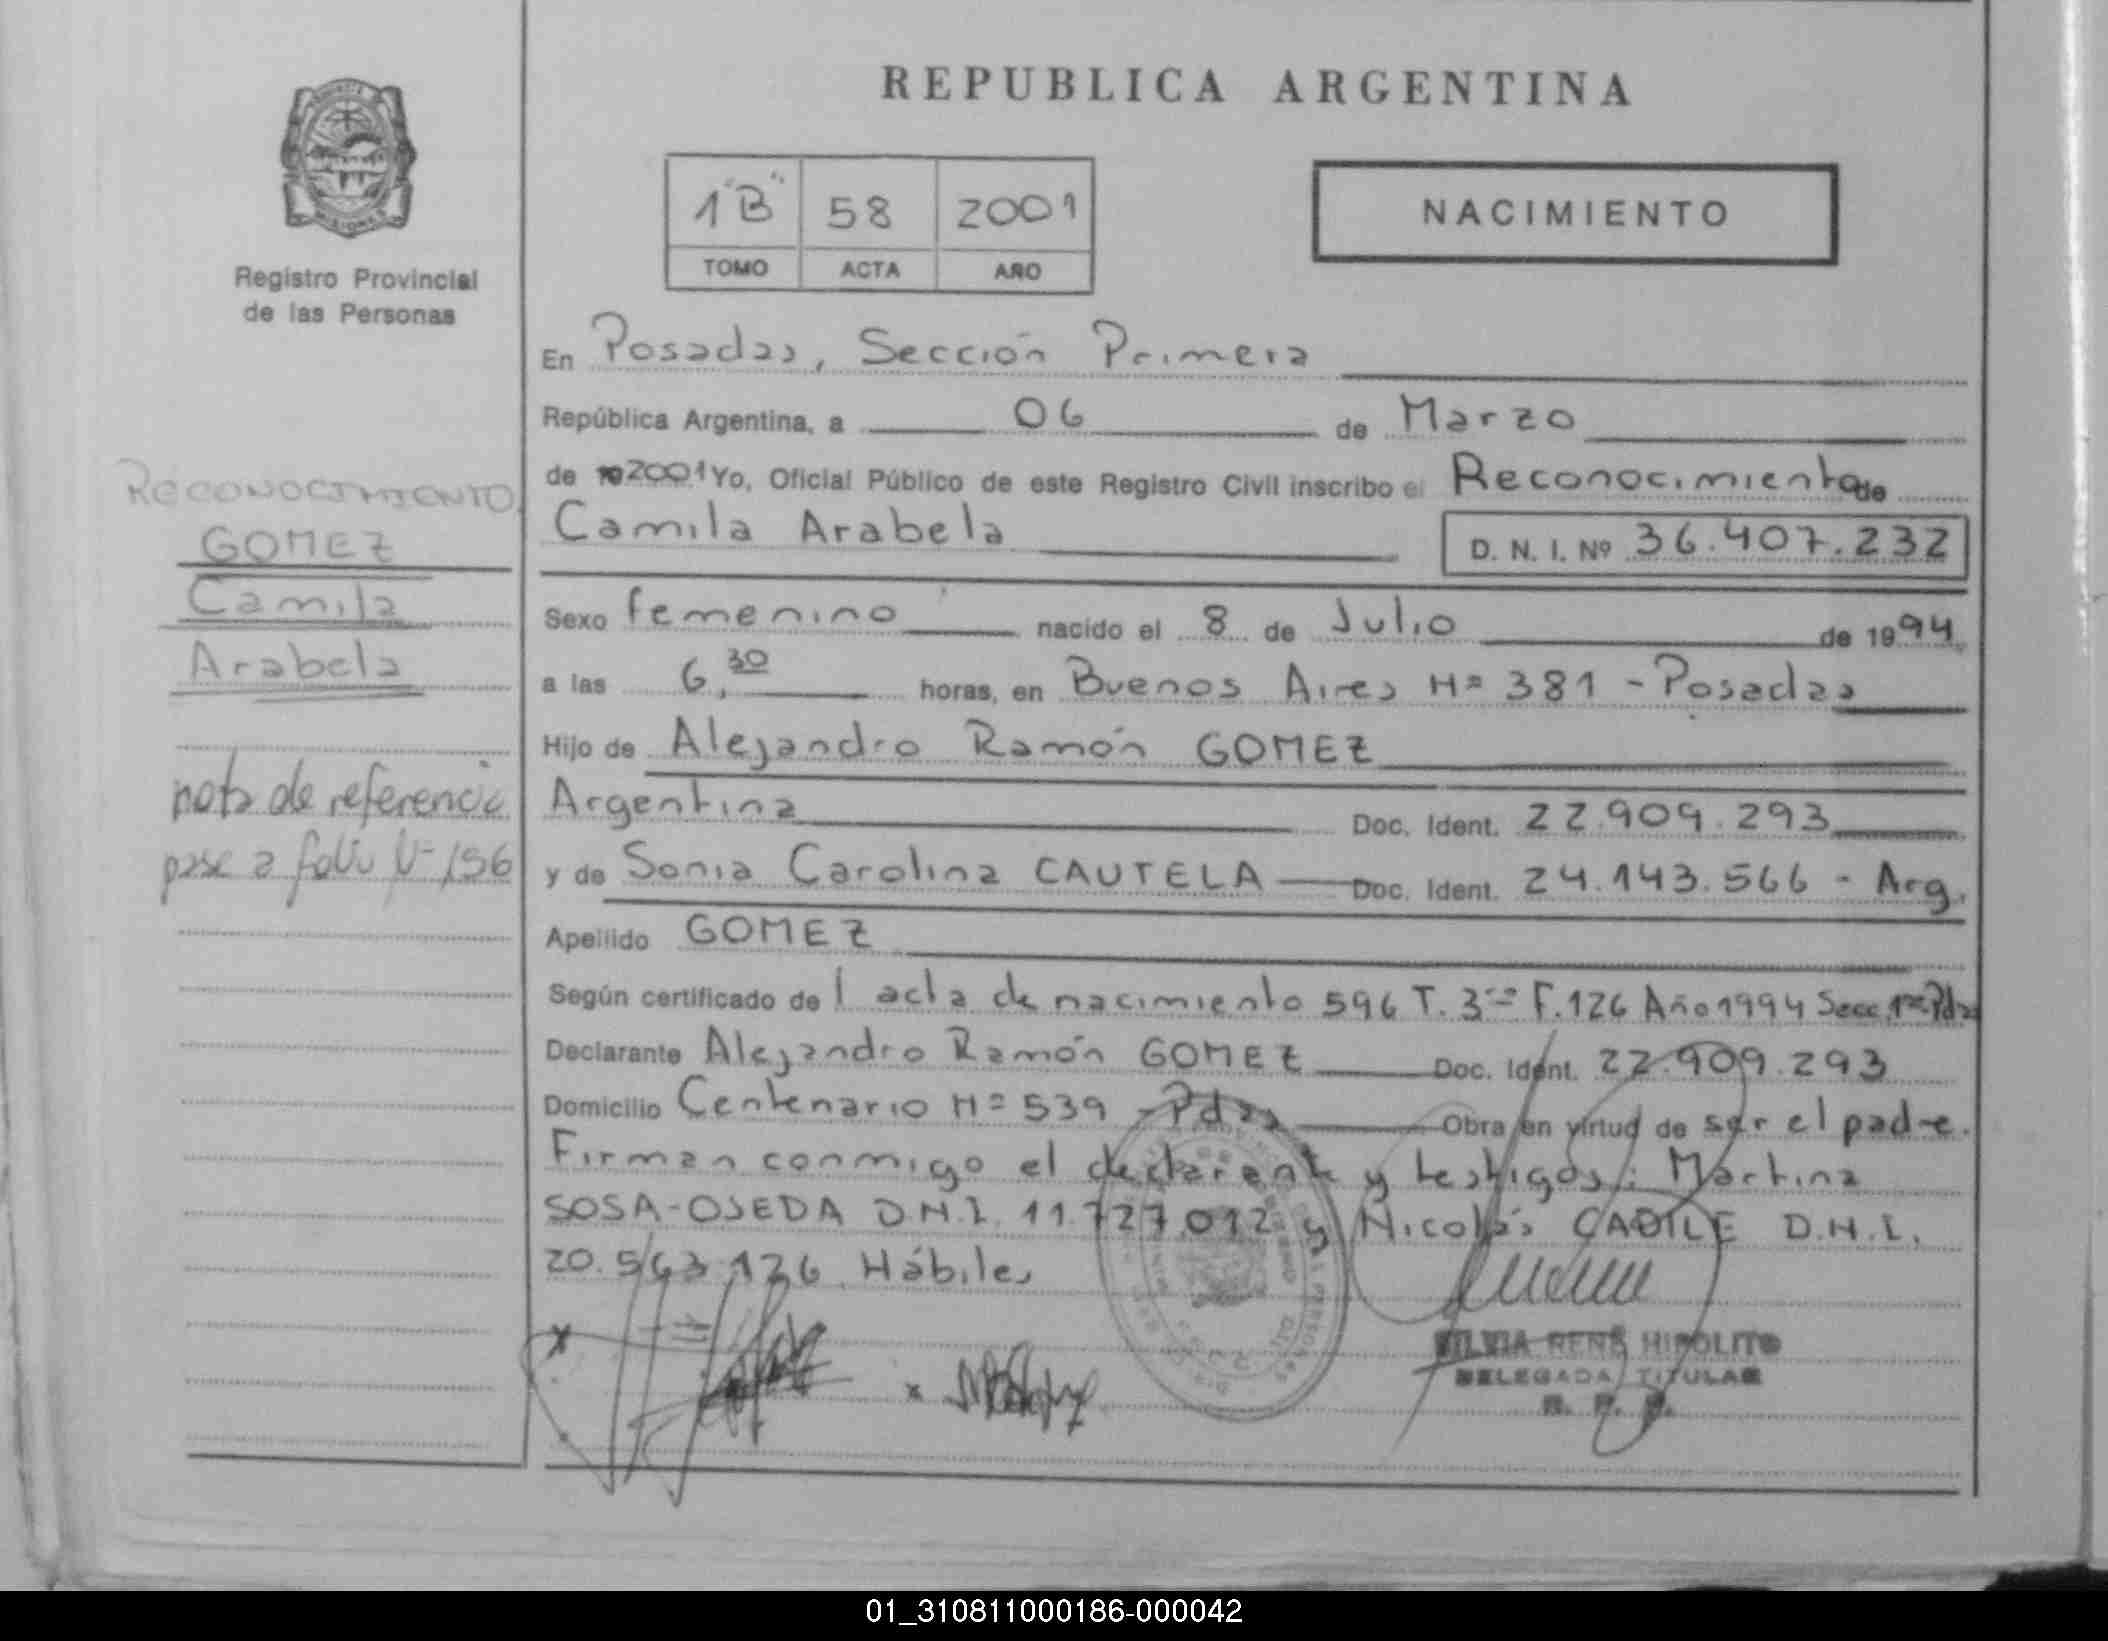 REPUBLICA ARGENTINA
1"B" 58 2001
TOMO ACTA AÑO
NACIMIENTO
Registro Provincial
de las Personas
En Posadas, Sección Primera
República Argentina, a 06 de Marzo
de 2001 Yo, Oficial Público de este Registro Civil inscribo el Reconocimiento de
Camila Arabela D. N. I. Nº 36.407.232
Sexo femenino nacido el 8 de Julio de 1994
a las 6,30 horas, en Buenos Aires Nº 381 - Posadas
Hijo de Alejandro Ramón GOMEZ
Argentina Doc. Ident. 22.909.293
y de Sonia Carolina CAUTELA Doc. Ident. 24.143.566 - Arg.
Apellido GOMEZ
Según certificado de acta de nacimiento 596 T. 3 F. 126 Año 1994 Secc. 1ra Pdas
Declarante Alejandro Ramón GOMEZ Doc. Ident. 22.909.293
Domicilio Centenario Nº 539 - Pdas Obra en virtud de ser el padre.
Firman conmigo el declarante y testigos: Martina
SOSA-OJEDA D.N.I. 11.727.012 y Nicolás D.N.I.
20.563.126 Hábiles
RECONOCIMIENTO
GOMEZ
Camila
Arabela
nota de referencia
pase a folio Nº 156
SILVIA RENÉ HIPOLITO
DELEGADA TITULAR
R. P. P.
01_310811000186-000042